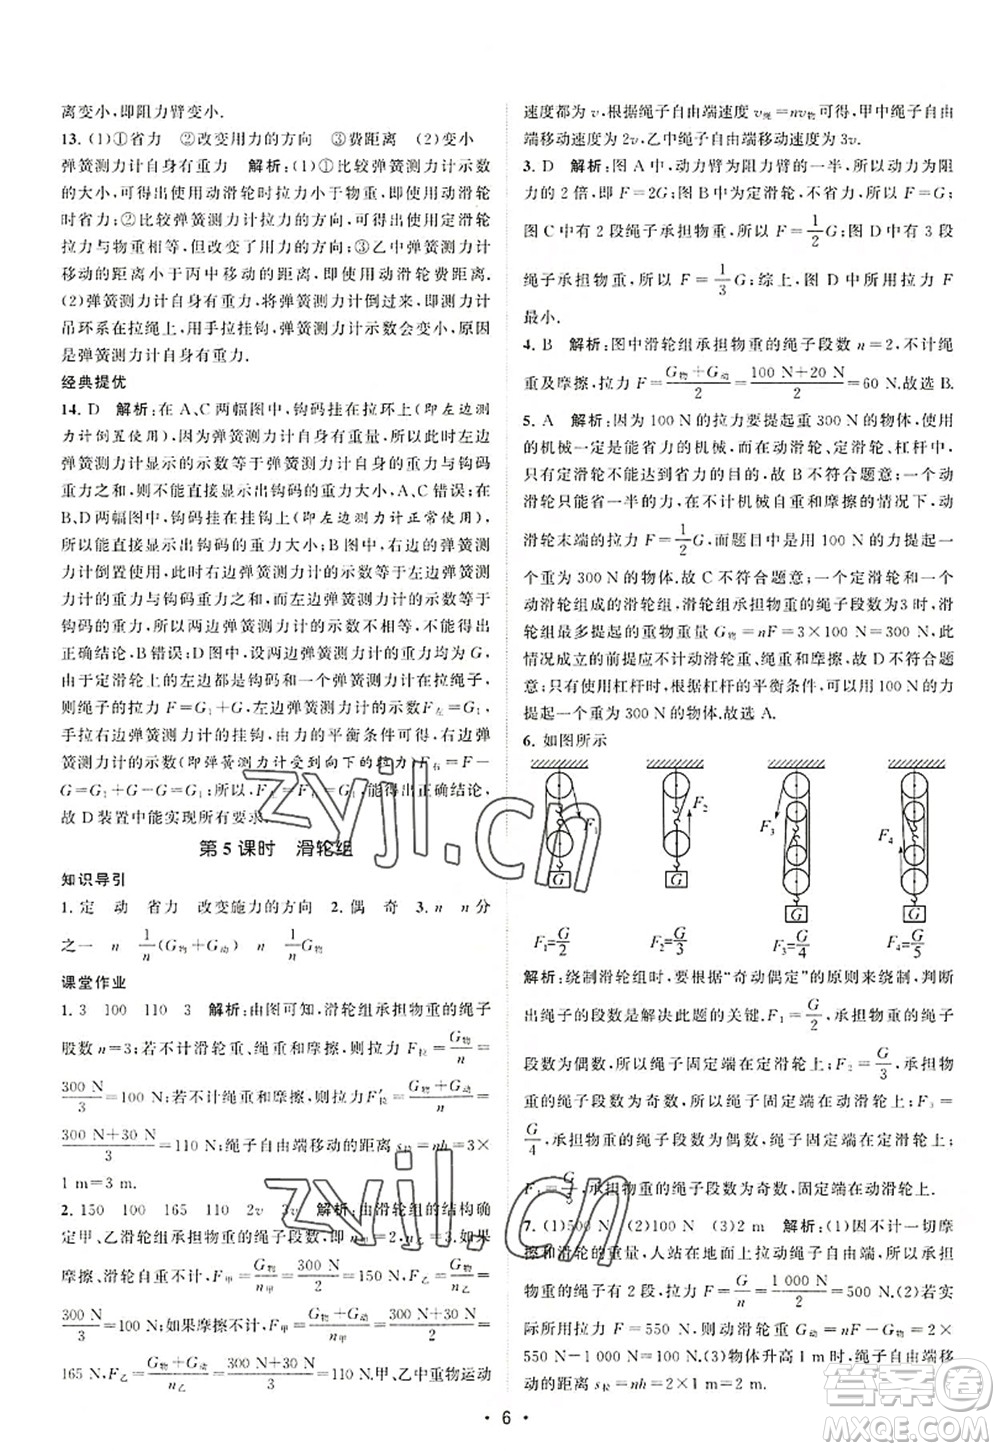 离变小,即阻力臂变小.
13. (1)①省力 ②改变用力的方向 ③费距离 (2)变小
弹簧测力计自身有重力 解析:(1)①比较弹簧测力计示数
的大小,可得出使用动滑轮时拉力小于物重,即使用动滑轮
时省力;②比较弹簧测力计拉力的方向,可得出使用定滑轮
拉力与物重相等,但改变了用力的方向;③乙中弹簧测力计
移动的距离小于丙中移动的距离,即使用动滑轮费距离.
(2)弹簧测力计自身有重力,将弹簧测力计倒过来,将测力计
吊环系在拉绳上,用手拉挂钩,弹簧测力计示数会变小,原因
是弹簧测力计自身有重力.
经典提优
14. D 解析:在A、C两幅图中,钩码挂在拉环上(即左边测
力计倒置使用),弹簧测力计自身有重量,所以此时左边弹
簧测力计显示的示数等于弹簧测力计自身的重力与钩码
重力之和,则不能直接显示出钩码的重力大小,A、C错误;在
B、D两幅图中,钩码挂在挂钩上(即左边测力计正常使用),
所以能直接显示出钩码的重力大小;但B图中右边弹簧测
力计倒置使用,此时右边弹簧测力计的示数等于弹簧测力计
自身的重力与钩码重力之和,即右边弹簧测力计的示数大于
钩码的重力,所以两边弹簧测力计的示数不相等,不能得出
正确结论,B错误;D图中,设两边弹簧测力计的重力为G,
由于定滑轮上的左边是钩码和弹簧测力计在拉绳子,
则绳子的拉力F=G₁+G,左边弹簧测力计的示数F左=G₁,
手拉右边弹簧测力计的挂钩,由力的平衡条件可知,右边弹
簧测力计受到的拉力(即弹簧测力计的示数)F右=F-
G=G₁+G-G=G₁,所以两边示数相等,能得出正确结论,
故D装置中能实现所有要求.
第5课时 滑轮组
知识导引
1. 定 动 省力 改变施力的方向 2. 偶 奇 3. n n分
之一 n 1/n(G物+G动) n 1/n G物
课堂作业
1. 3 100 110 3 解析:由图可知,滑轮组承担物重的绳子
股数n=3;若不计滑轮重、绳重和摩擦,则拉力F拉=G物/n=
300 N/3=100 N;若不计绳重和摩擦,则拉力F′拉=(G物+G动)/n=
(300 N+30 N)/3=110 N;绳子自由端移动的距离s绳=nh=3×
1 m=3 m.
2. 150 100 165 110 2v 3v 解析:由滑轮组的结构确
定甲、乙滑轮组承担物重的绳子段数为n甲=2,n乙=3.如果
摩擦、滑轮自重不计,F甲=G物/n甲=300 N/2=150 N,F乙=G物/n乙=
300 N/3=100 N;如果摩擦不计,F甲=(G物+G动)/n甲=(300 N+30 N)/2=
165 N,F乙=(G物+G动)/n乙=(300 N+30 N)/3=110 N.甲、乙中重物运动
速度都为v,根据绳子自由端速度v绳=nv物可得,甲中绳子自由
端移动速度为2v,乙中绳子自由端移动速度为3v.
3. D 解析:图A中,动力臂为阻力臂的一半,所以动力为阻
力的2倍,即F=2G;图B中为定滑轮,不省力,所以F=G;
图C中有2段绳子承担物重,所以F=1/2G;图D中有3段
绳子承担物重,所以F=1/3G;综上,图D中所用的拉力F
最小.
4. B 解析:图中滑轮组承担物重的绳子段数n=2,不计绳
重及摩擦,拉力F=(G物+G动)/2=(100 N+20 N)/2=60 N,故选B.
5. A 解析:因为100 N的拉力要提起重300 N的物体,使用
的机械一定是能省力的机械,而在动滑轮、定滑轮、杠杆中,
只有定滑轮不能达到省力的目的,故B不符合题意;一个动
滑轮只能省一半的力,在不计机械自重和摩擦的情况下,动
滑轮末端的拉力F=1/2G,而题目中要用100 N的力提起一
个重为300 N的物体.故C不符合题意;一个定滑轮和一个
动滑轮组成的滑轮组,滑轮组承担物重的绳子段数为3时,滑
轮组最多提起的重物重量G物=nF=3×100 N=300 N;此
情况成立的前提应不计动滑轮重、绳重和摩擦,故D不符合
题意;只有使用杠杆时,根据杠杆的平衡条件,可用100 N的力
提起一个重为300 N的物体.故选A.
6. 如图所示
F₁ F₂ F₃ F₄
G G G G
F₁=G/2 F₂=G/3 F₃=G/4 F₄=G/5
解析:绕制滑轮组时,要根据“奇动偶定”的原则来绕制,判断
出绳子的段数是解决此题的关键.F₁=G/2,承担物重的绳子
段数为偶数,所以绳子固定端在定滑轮上;F₂=G/3,承担物重
的绳子段数为奇数,所以绳子固定端在动滑轮上;F₃=
G/4,承担物重的绳子段数为偶数,所以固定端在定滑轮上;
F₁=G/5,承担物重的绳子段数为奇数,固定端在动滑轮上.
7. (1)500 N (2)150 N (3)2 m 解析:(1)因不计一切摩
擦和滑轮的重量,人站在地面上拉动绳子自由端,承担物重
的绳子段数为2,拉力F=G/n=1 000 N/2=500 N.(2)若在实
际所用的拉力F=550 N,则动滑轮重G动=nF-G物=2×
550 N-1 000 N=100 N.(3)物体升高1 m时,绳子自由端移
动的距离s绳=nh=2×1 m=2 m.
· 6 ·
zyjl.cn
zyjl.cn
答案圈
MXQE.COM